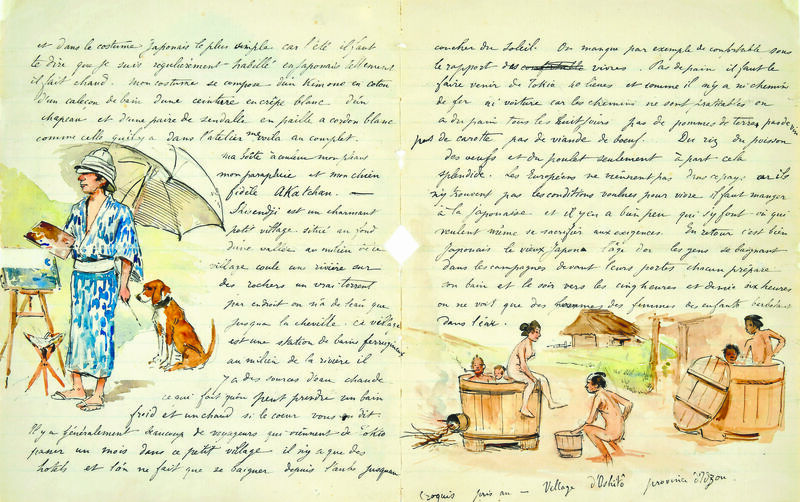 et dans le costume Japonais le plus simple car l'été il faut
te dire que je suis regulièrement habillé en Japonais tellement
il fait chaud. Mon costume se compose d'un Kimono en coton
d'un caleçon de bain d'une ceinture en crêpe blanc d'un
chapeau et d'une paire de sandalle en paille a cordon blanc
comme celle qu'il y a dans l'atelier me voila au complet.
ma boîte à couleur mon pliant
mon parapluie et mon chien
fidèle Akatchan. —
est un charmant
petit village situé au fond
d'une vallée au milieu de ce
village coule une rivière sur
des rochers un vrai torrent
par endroit on n'a de l'eau que
jusqu'à la cheville. Ce village
est une station de bains ferrugineux
au milieu de la rivière il
y a des sources d'eau chaude
ce qui fait qu'on peut prendre un bain
froid et un chaud si le coeur vous en dit
Il y a généralement beaucoup de voyageurs qui viennent de Tokio
passer un mois dans ce petit village il n'y a que des
hotels et l'on ne fait que se baigner depuis l'aube jusquau
coucher du soleil. On manque par exemple de confortable sous
le rapport des vivres. Pas de pain il faut le
faire venir de Tokio 40 lieues et comme il n'y a ni chemins
de fer ni voiture car les chemins ne sont praticables on
a du pain tous les huit jours pas de pommes de terres pas de vin
pas de carotte pas de viande de boeuf... Du riz du poisson
des oeufs et du poulet seulement à part cela
splendide. Les Européens ne viennent pas dans ce pays car ils
n'y trouvent pas les conditions voulues pour vivre il faut manger
à la japonaise et il y en a bien peu qui s'y font où qui
veulent même se sacrifier aux exigences. En retour c'est bien
Japonais le vieux Japon l'age d'or les gens se baignant
dans les campagnes devant leurs portes chacun prépare
son bain et le soir vers les cinq heures et demie six heures
on ne voit que des hommes des femmes des enfants
dans l'eau.
Croquis pris au — Village d'Oshitô province d'Idzou.